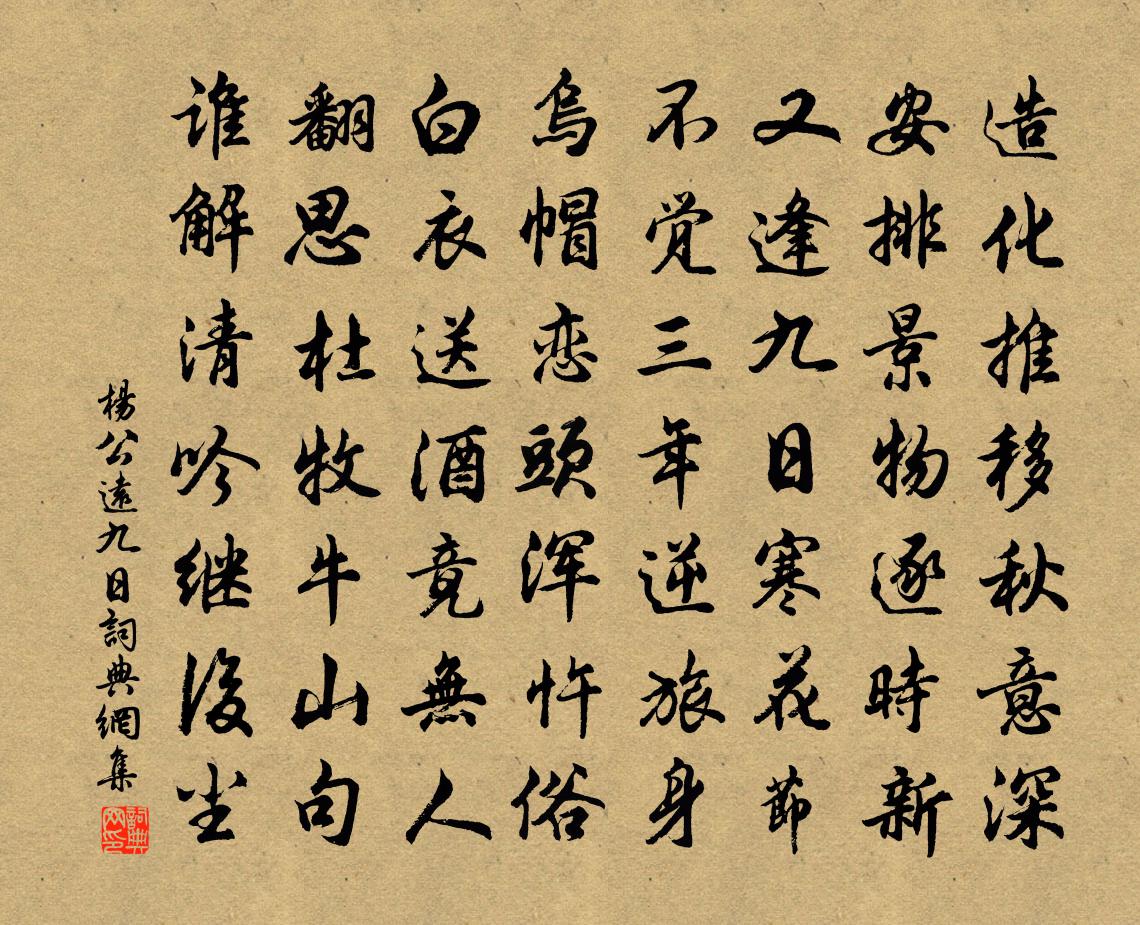 造化推移秋意深
安排景物逐時新
又逢九日寒花節
不觉三年逆旅身
烏帽恋頭浑忤俗
白衣送酒竟無人
翻思杜牧牛山句
谁解清吟继後尘
楊公遠九日詞典網集
詞典网印